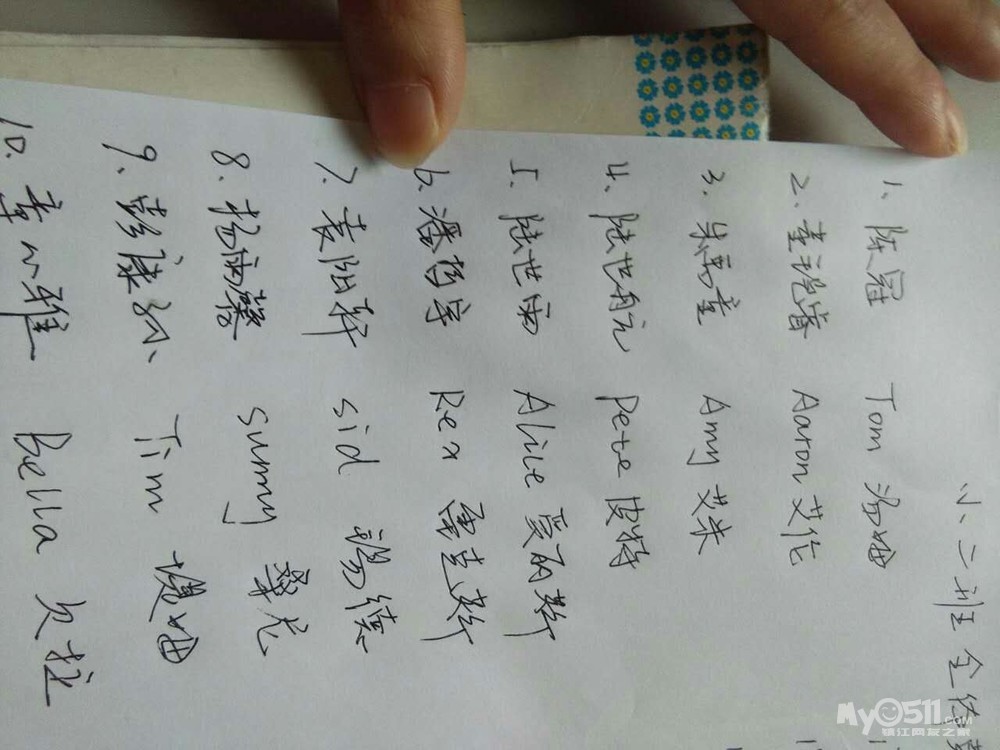 小二班 全体
1. 陈冠 Tom 汤姆
2. 睿 Aaron 艾伦
3. 朱禹童 Amy 艾米
4. 陆世航 Pete 皮特
5. 陆世雨 Alice 爱丽斯
6. 潘哲宇 Rex 雷克斯
7. 袁阳轩 sid 锡德
8. 杨雨馨 summy
9. 彭康 Tim 提姆
10. 章心雅 Bella 贝拉
My0511.com
镇江网友之家